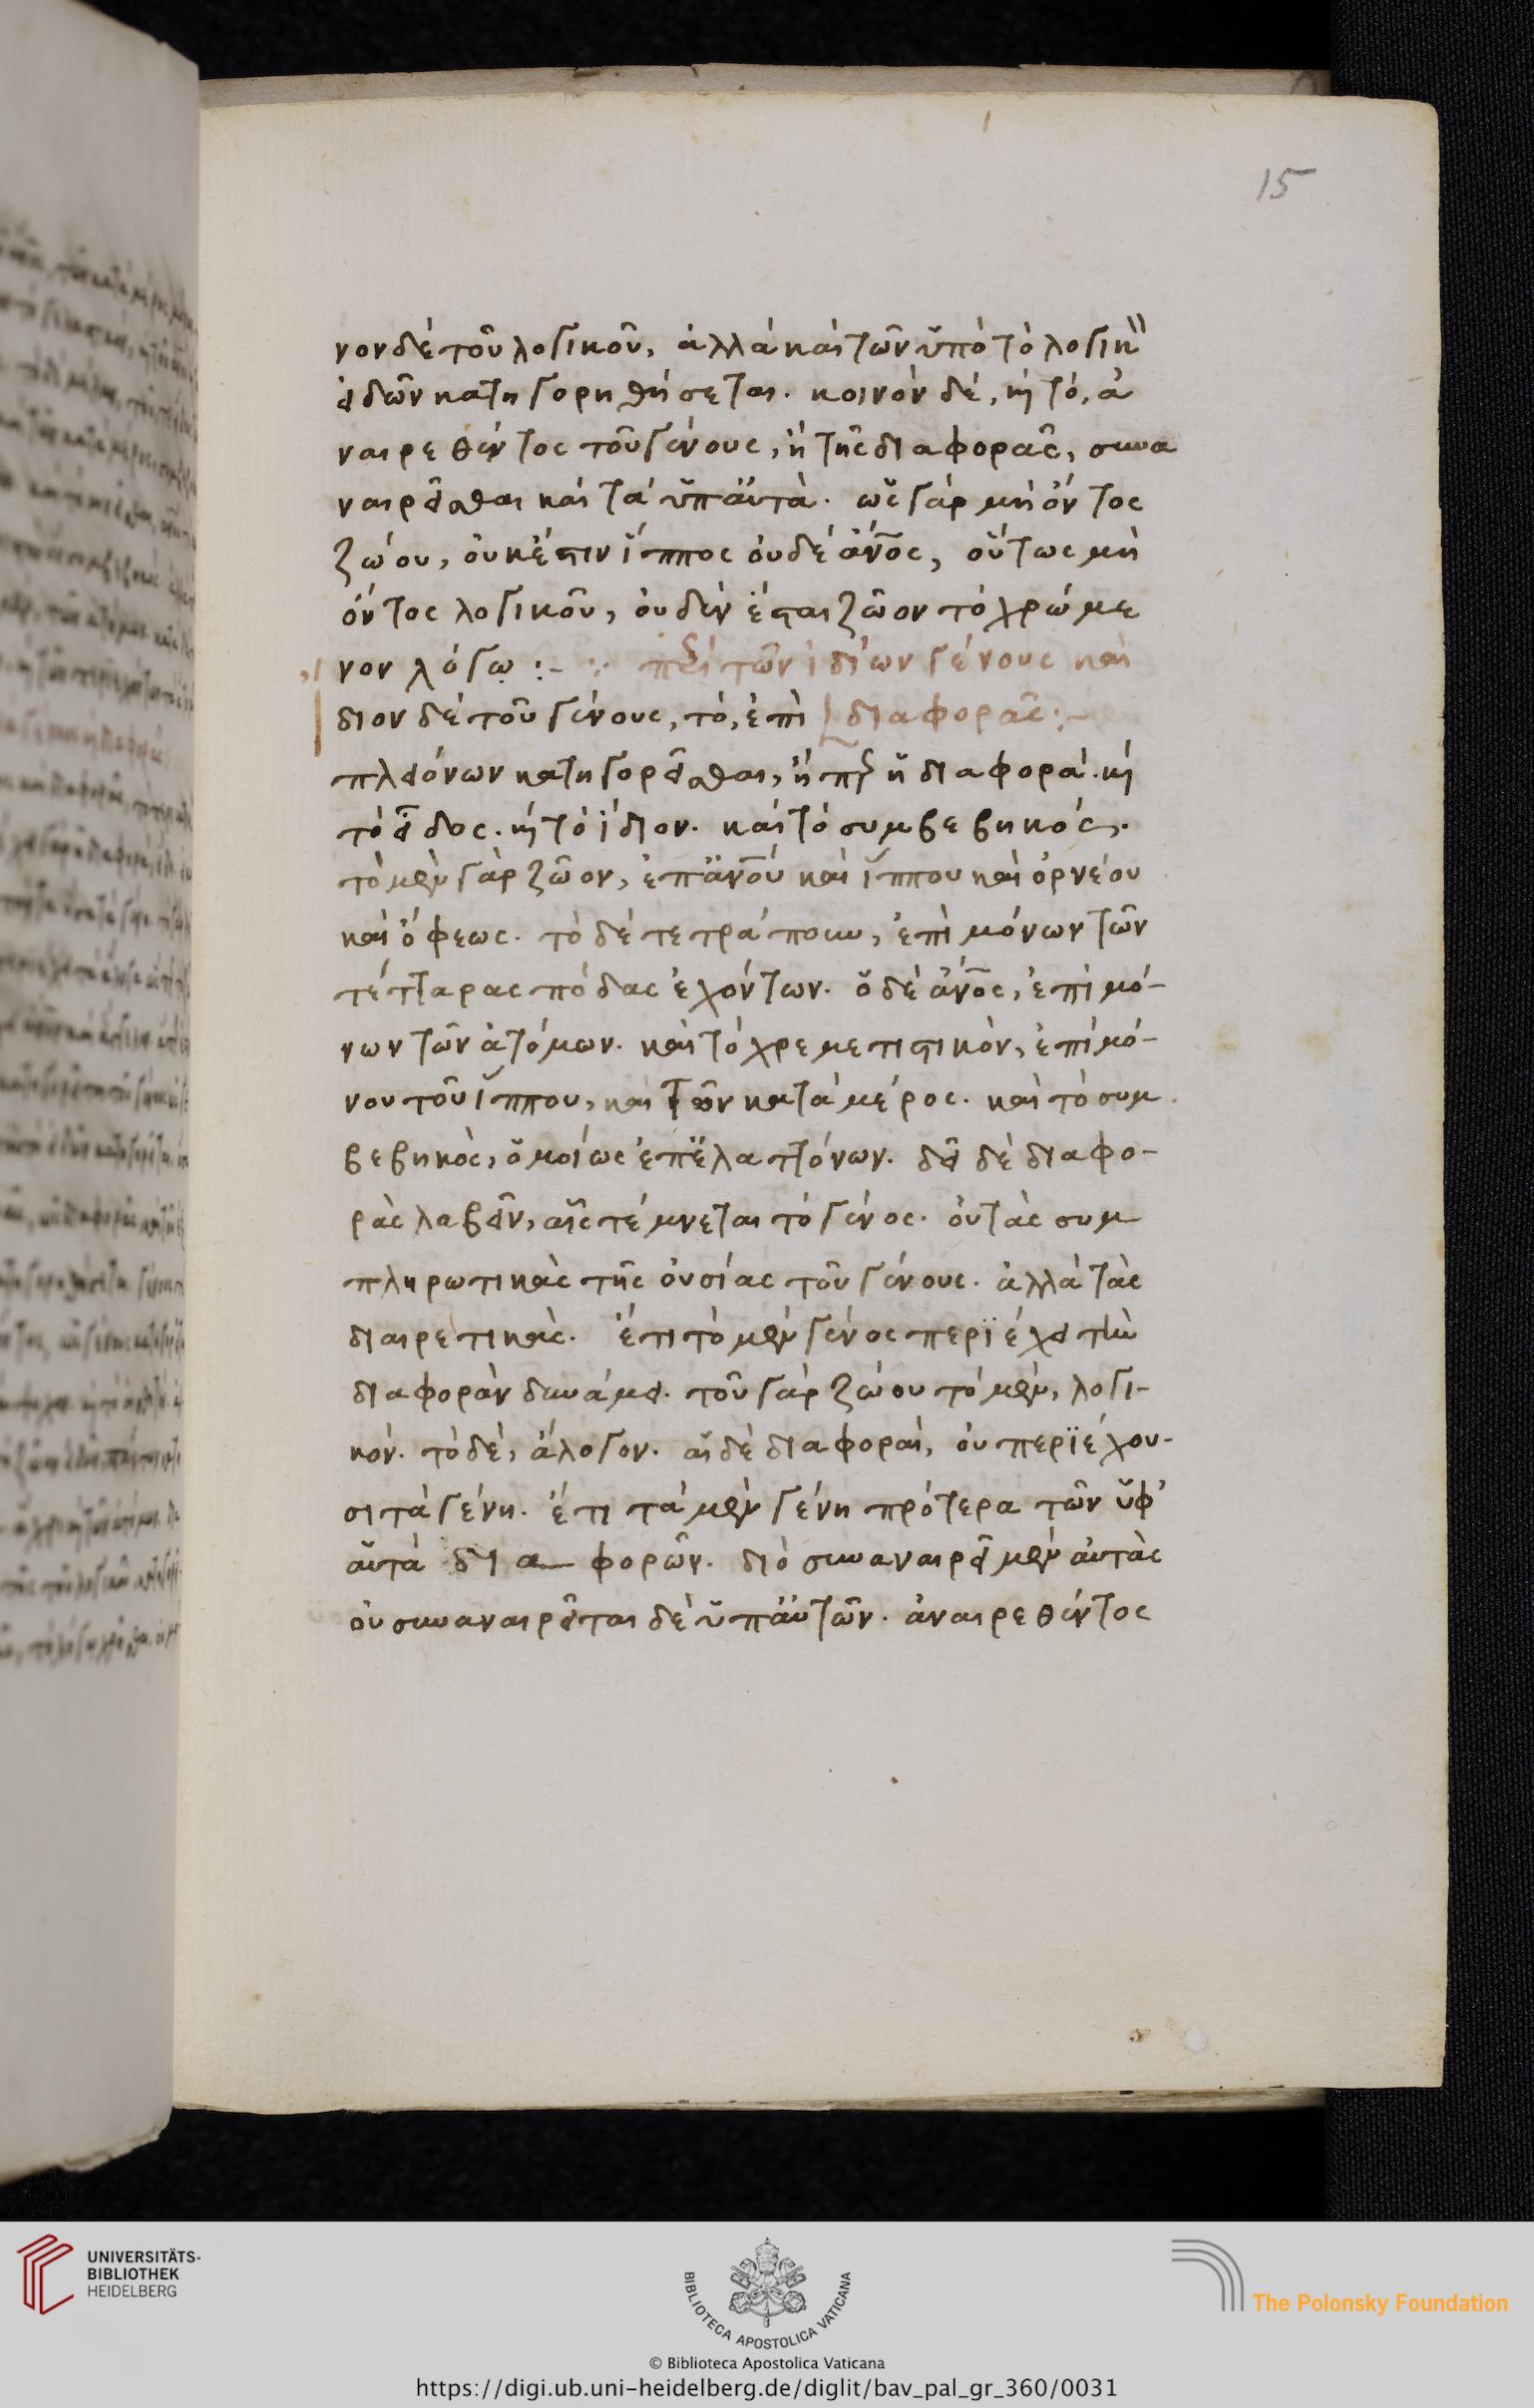 15
νον δὲ τοῦ λογικοῦ, ἀλλὰ καὶ τῶν ὑπὸ τὸ λογικ``
εἰδῶν κατηγορηθήσεται. κοινὸν δὲ, κ͗ τὸ, ἀ
ναιρεθέντος τοῦ γένους, ἢ τῆς διαφορᾶς, συνα
ναιρεῖσθαι καὶ τὰ ὑπ' αὐτὰ. ὡς γὰρ μὴ ὄντος
ζώου, οὐκ ἔστιν ἵππος οὐδὲ ἄν̅ος, οὕτως μὴ
ὄντος λογικοῦ, οὐδὲν ἔσται ζῶον τὸ χρώμε
νον λόγω :- ∵ περὶ τῶν ἰδίων γένους καὶ
διον δὲ τοῦ γένους, τὸ, ἐπὶ διαφορᾶς :-
πλειόνων κατηγορεῖσθαι, ἤπερ ἡ διαφορά. κ͗
τὸ εἶδος. κ͗ τὸ ἴδιον. καὶ τὸ συμβεβηκός.
τὸ μὲν γὰρ ζῶον, ἐπ' ἀν̅ου καὶ ἵππου καὶ ὀρνέου
καὶ ὄφεως. τὸ δὲ τετράπουν, ἐπὶ μόνων τῶν
τέτταρας πόδας ἐχόντων. ὁ δὲ ἄν̅ος, ἐπὶ μό-
νων τῶν ἀτόμων. καὶ τὸ χρεμετιστικὸν, ἐπὶ μό-
νου τοῦ ἵππου, καὶ τῶν κατὰ μέρος. καὶ τὸ συμ
βεβηκὸς, ὁμοίως ἐπ' ἐλαττόνων. δεῖ δὲ διαφο-
ρὰς λαβεῖν, αἷς τέμνεται τὸ γένος. οὐ τὰς συμ
πληρωτικὰς τῆς οὐσίας τοῦ γένους. ἀλλὰ τὰς
διαιρετικὰς. ἔτι τὸ μὲν γένος περϊέχει τὴν
διαφορὰν δυνάμει. τοῦ γὰρ ζώου τὸ μὲν, λογι-
κόν. τὸ δὲ, ἄλογον. αἱ δὲ διαφοραὶ, οὐ περϊέχου-
σι τὰ γένη. ἔτι τὰ μὲν γένη πρότερα τῶν ὑφ'
αὑτὰ δια— φορῶν. διὸ συναναιρεῖ μὲν αὐτὰς
οὐ συναναιρεῖται δὲ ὑπ' αὐτῶν. ἀναιρεθέντος
UNIVERSITÄTS-
BIBLIOTHEK
HEIDELBERG
BIBLIOTECA APOSTOLICA VATICANA
The Polonsky Foundation
© Biblioteca Apostolica Vaticana
https://digi.ub.uni-heidelberg.de/diglit/bav_pal_gr_360/0031